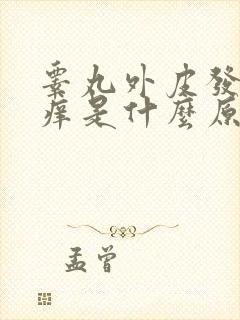 睾丸外皮發
癢是什麼原
孟曾